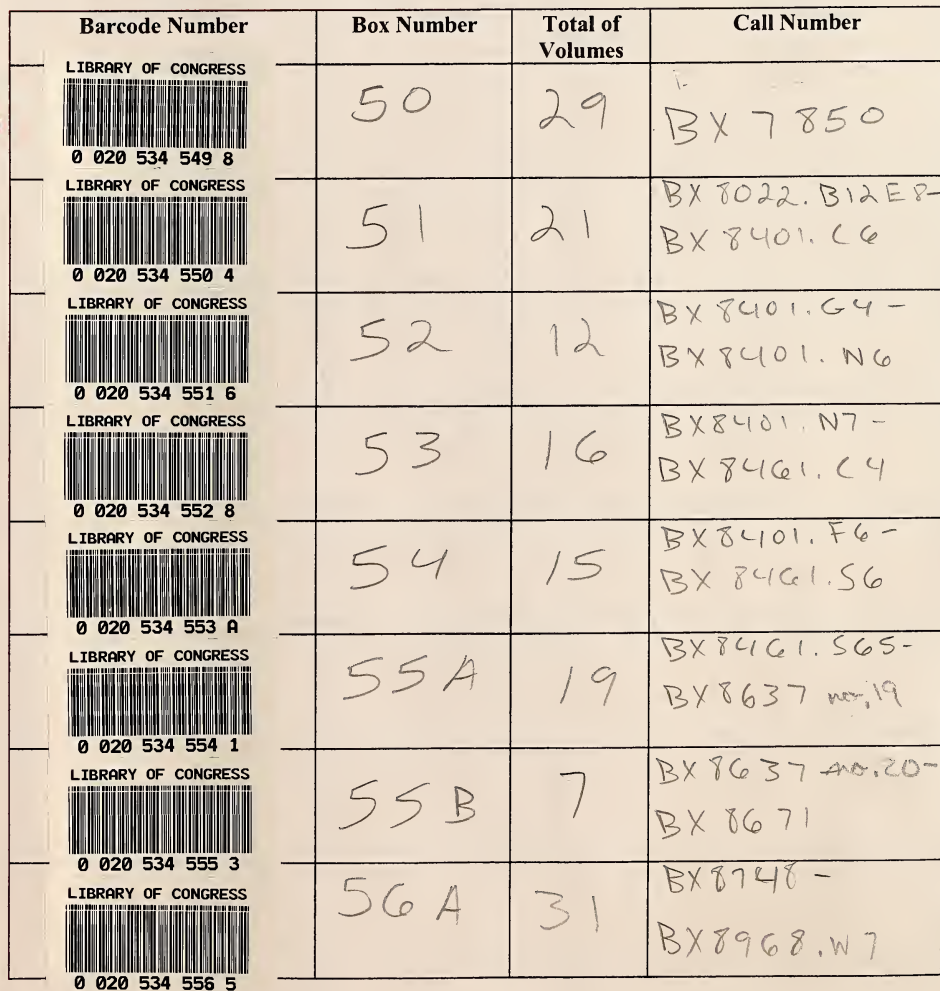 Barcode Number Box Number Total of Volumes Call Number
LIBRARY OF CONGRESS
0 020 534 549 8
50 29 BX 7850
LIBRARY OF CONGRESS
0 020 534 550 4
51 21 BX 8022. B12 E8-
BX 8401. C6
LIBRARY OF CONGRESS
0 020 534 551 6
52 12 BX 8401. G4 -
BX 8401. N6
LIBRARY OF CONGRESS
0 020 534 552 8
53 16 BX8401. N7 -
BX 8461. C4
LIBRARY OF CONGRESS
0 020 534 553 A
54 15 BX8401. F6 -
BX 8461. S6
LIBRARY OF CONGRESS
0 020 534 554 1
55A 19 BX8461. S65-
BX8637 no. 19
LIBRARY OF CONGRESS
0 020 534 555 3
55B 7 BX8637 no. 20-
BX 8671
LIBRARY OF CONGRESS
0 020 534 556 5
56A 31 BX8748 -
BX8968. W7